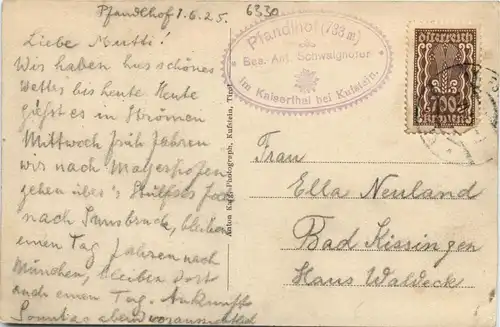 Pfandlhof 1.6.25.
6330
Liebe Mutti!
Wir haben bis schönes
Wetter bis heute. Heute
gießt es in Strömen
Mittwoch früh fahren
wir nach
gehen über's
nach Innsbruck, bleiben
einen Tag, fahren nach
München, bleiben dort
auch einen Tag. Ankunft
Sonntag abend voraussichtlich
Pfandlhof (783 m)
Bes. Ant. Schwaighofer
im Kaiserthal bei Kufstein.
Anton Karg, Photograph, Kufstein, Tirol
Österreich
700
Kronen
Frau
Ella Neuland
Bad Kissingen
Haus Waldeck